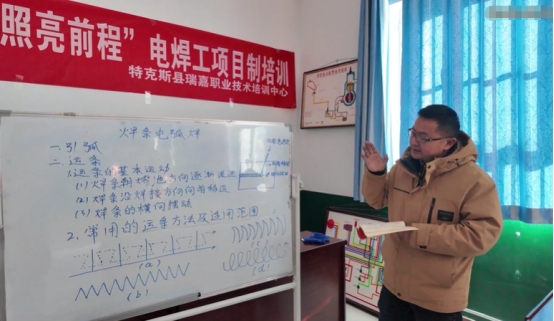 照亮前程”电焊工项目制培训
特克斯县瑞嘉职业技术培训中心
焊条电弧焊
一、引弧
二、运条
1.运条的基本运动
(1)焊条朝熔池方向逐渐送进
(2)焊条沿焊接方向向前移动
(3)焊条的横向摆动
2、常用的运条方法及适用范围
(a)
(b)
(c)
(d)